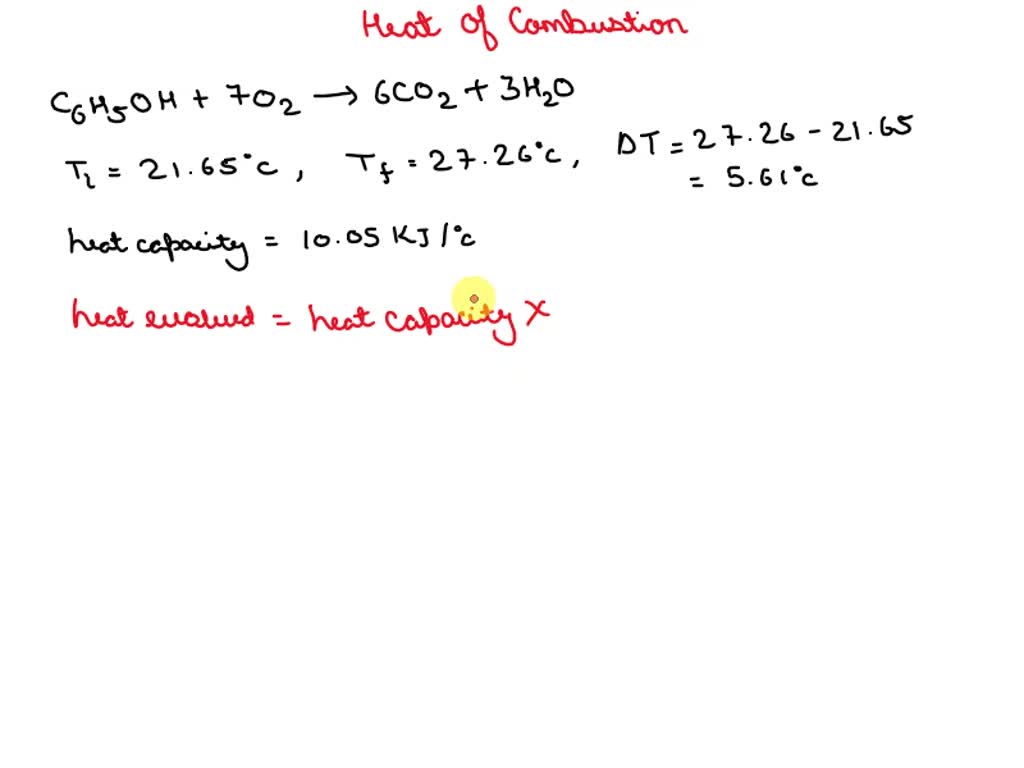 Heat of Combustion
C6H5OH + 7O2 → 6CO2 + 3H2O
Ti = 21.65°C, Tf = 27.26°C, DT = 27.26 - 21.65
= 5.61°C
heat capacity = 10.05 KJ/°C
heat evolved = heat capacity ×